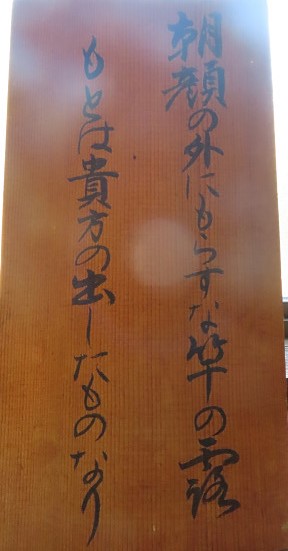 朝顔の外にもらすな竿の露
もとは貴方の出したものなり